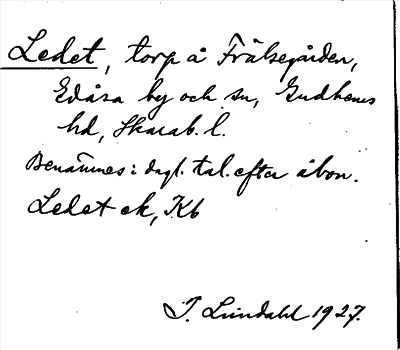 Ledet, torp å Frälsegården,
Edåsa by och sn, Gudhems
hd, Skarab. l.
Benämnes i dagl. tal. efter åbon.
Ledet ek, Kb
I. Lundahl 1927.